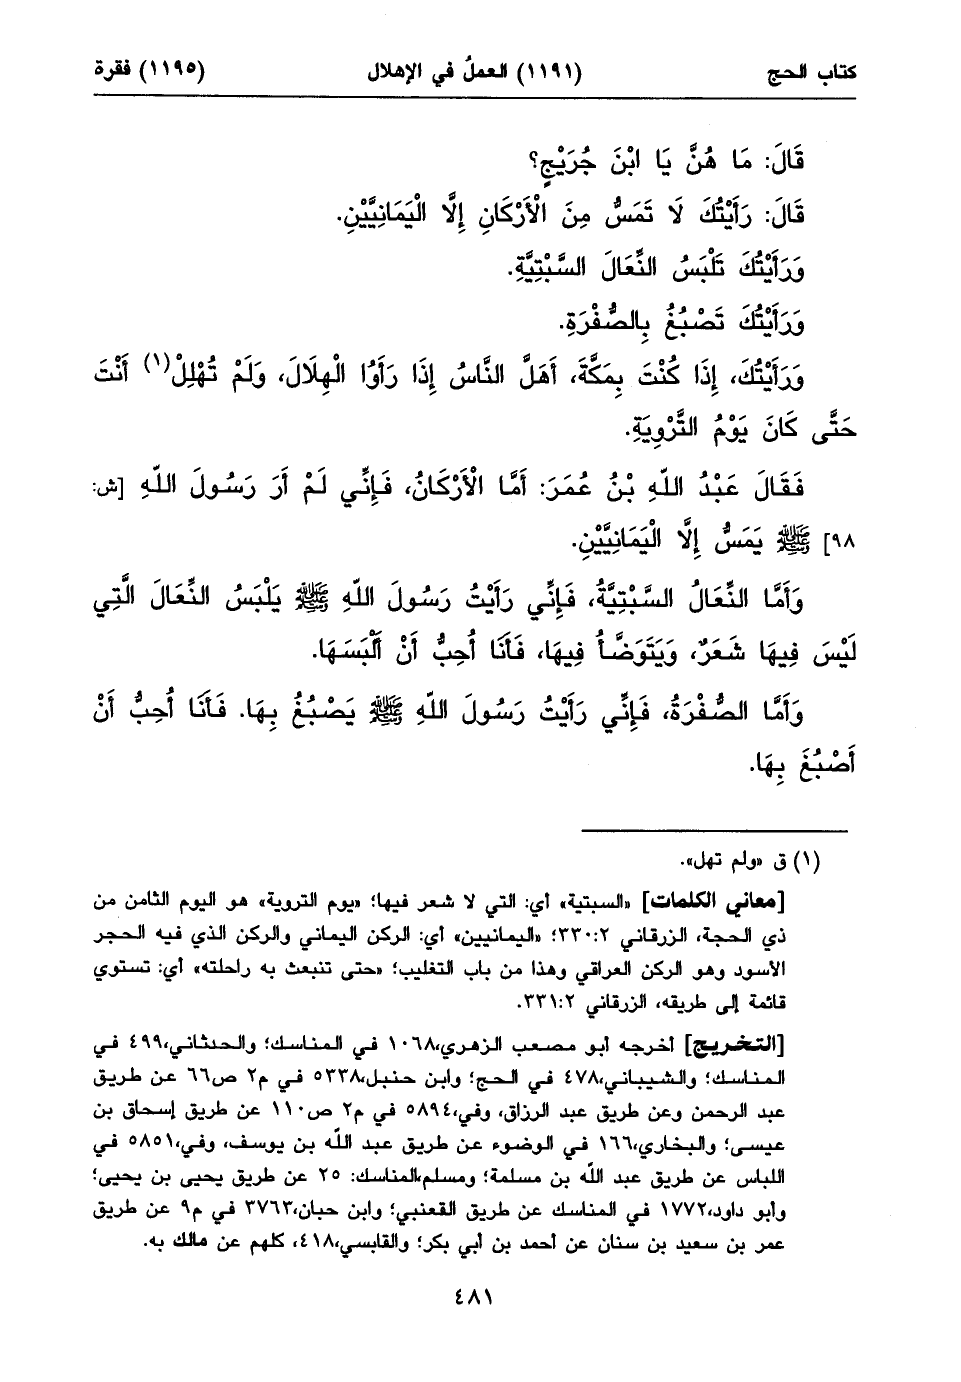 كتاب الحج (١١٩١) العملُ في الإهلال (١١٩٥) فقرة
قَالَ: مَا هُنَّ يَا ابْنَ جُرَيْجٍ؟
قَالَ: رَأَيْتُكَ لَا تَمَسُّ مِنَ الْأَرْكَانِ إِلَّا الْيَمَانِيَّيْنِ.
وَرَأَيْتُكَ تَلْبَسُ النِّعَالَ السَّبْتِيَّةَ.
وَرَأَيْتُكَ تَصْبُغُ بِالصُّفْرَةِ.
وَرَأَيْتُكَ، إِذَا كُنْتَ بِمَكَّةَ، أَهَلَّ النَّاسُ إِذَا رَأَوُا الْهِلَالَ، وَلَمْ تُهْلِلْ(١) أَنْتَ
حَتَّى كَانَ يَوْمُ التَّرْوِيَةِ.
فَقَالَ عَبْدُ اللّهِ بْنُ عُمَرَ: أَمَّا الْأَرْكَانُ، فَإِنِّي لَمْ أَرَ رَسُولَ اللّهِ [ش:
٩٨] ﷺ يَمَسُّ إِلَّا الْيَمَانِيَّيْنِ.
وَأَمَّا النِّعَالُ السَّبْتِيَّةُ، فَإِنِّي رَأَيْتُ رَسُولَ اللّهِ ﷺ يَلْبَسُ النِّعَالَ الَّتِي
لَيْسَ فِيهَا شَعَرٌ، وَيَتَوَضَّأُ فِيهَا، فَأَنَا أُحِبُّ أَنْ أَلْبَسَهَا.
وَأَمَّا الصُّفْرَةُ، فَإِنِّي رَأَيْتُ رَسُولَ اللّهِ ﷺ يَصْبُغُ بِهَا. فَأَنَا أُحِبُّ أَنْ
أَصْبُغَ بِهَا.
(١) ق «ولم تهل».
[معاني الكلمات] «السبتية» أي: التي لا شعر فيها؛ «يوم التروية» هو اليوم الثامن من
ذي الحجة، الزرقاني ٢:‏٣٣٠؛ «اليمانيين» أي: الركن اليماني والركن الذي فيه الحجر
الأسود وهو الركن العراقي وهذا من باب التغليب؛ «حتى تنبعث به راحلته» أي: تستوي
قائمة إلى طريقه، الزرقاني ٢:‏٣٣١.
[التخريج] أخرجه أبو مصعب الزهري،١٠٦٨ في المناسك؛ والحدثاني،٤٩٩ في
المناسك؛ والشيباني،٤٧٨ في الحج؛ وابن حنبل،٥٣٣٨ في م٢ ص٦٦ عن طريق
عبد الرحمن وعن طريق عبد الرزاق، وفي،٥٨٩٤ في م٢ ص١١٠ عن طريق إسحاق بن
عيسى؛ والبخاري،١٦٦ في الوضوء عن طريق عبد اللّه بن يوسف، وفي،٥٨٥١ في
اللباس عن طريق عبد اللّه بن مسلمة؛ ومسلم،المناسك: ٢٥ عن طريق يحيى بن يحيى؛
وأبو داود،١٧٧٢ في المناسك عن طريق القعنبي؛ وابن حبان،٣٧٦٣ في م٩ عن طريق
عمر بن سعيد بن سنان عن أحمد بن أبي بكر؛ والقابسي،٤١٨، كلهم عن مالك به.
٤٨١